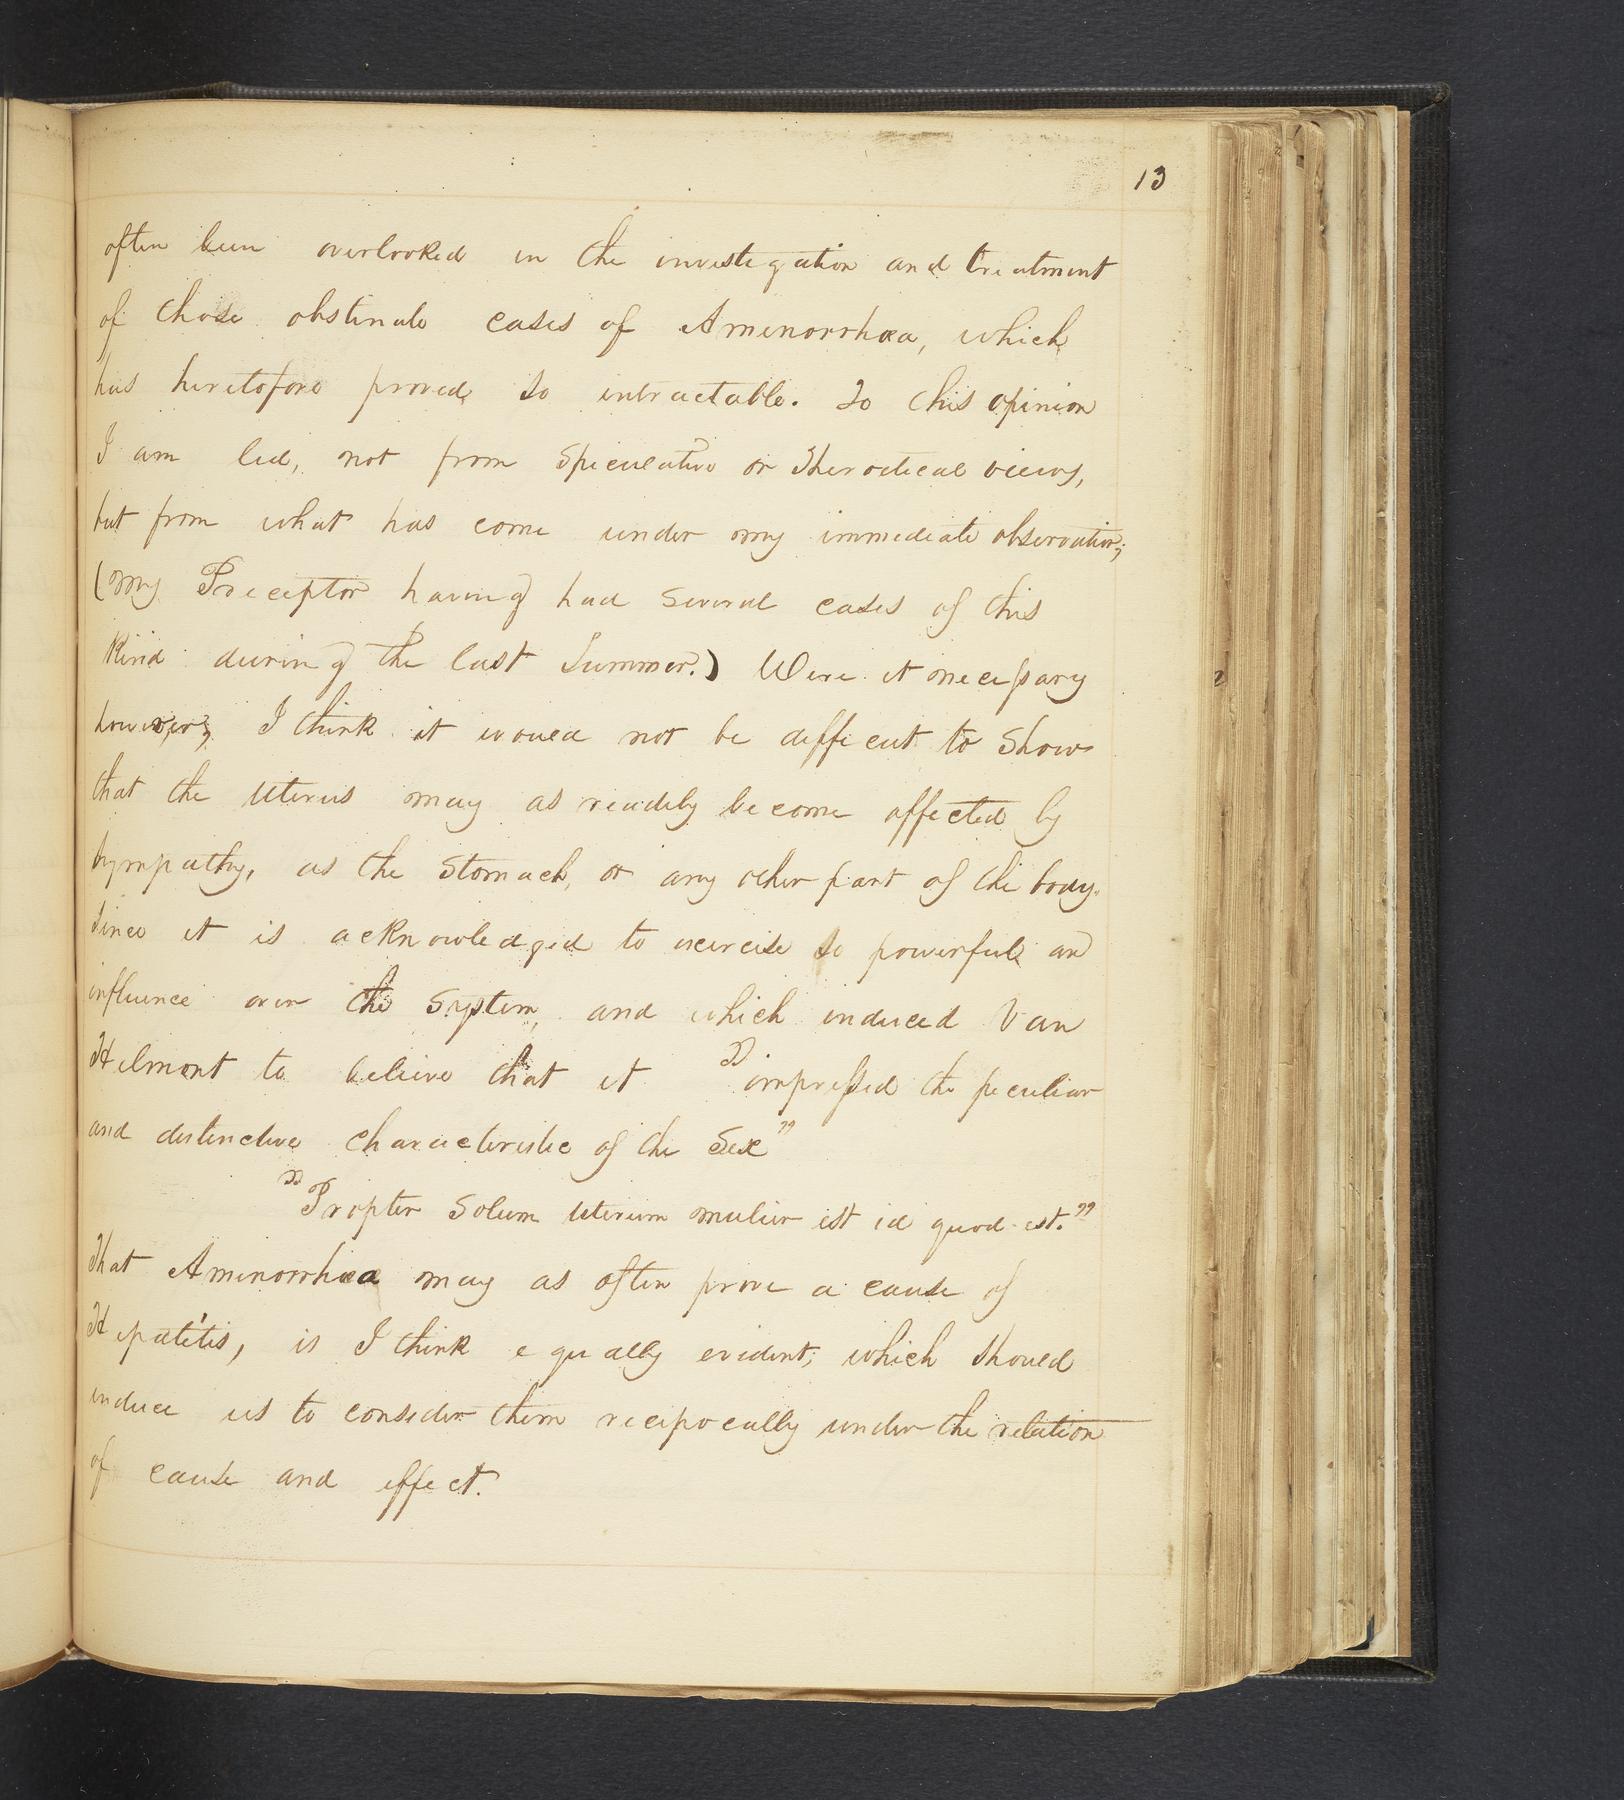 13
often been overlooked in the investigation and treatment
of those obstinate cases of Amenorrhœa, which
has heretofore proved so intractable. To this opinion
I am led, not from speculative or theroetical views,
but from what has come under my immediate observation;
(my Preceptor having had several cases of this
kind during the last Summer.) Were it necessary
however, I think it would not be difficut to show
that the uterus may as readily become affected by
sympathy, as the stomach, or any other part of the body.
since it is acknowledged to exercise so powerful an
influence over the system, and which induced Van
Helmont to believe that it "impressed the peculiar
and distinctive characteristic of the sex"
"Propter solum uterum mulier est id quod est."
That Amenorrhœa may as often prove a cause of
Hepatitis, is I think equally evident; which should
induce us to consider them reciprocally under the relation
of cause and effect.